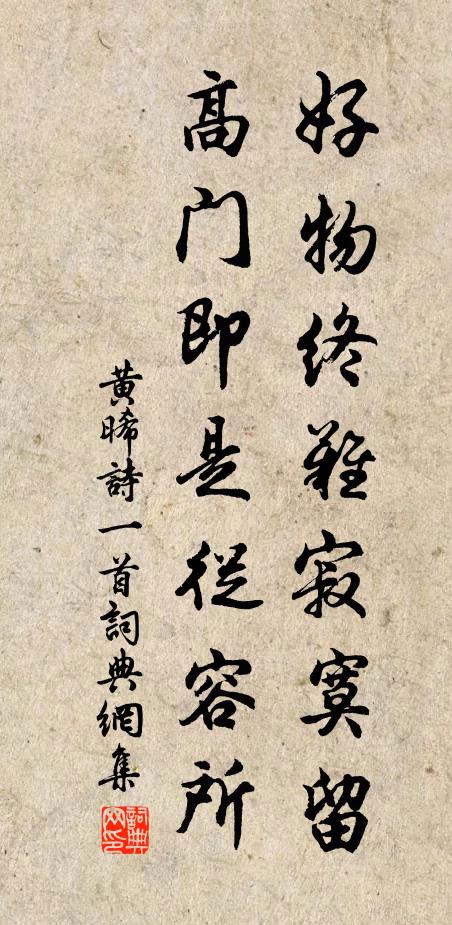 好物终难寂寞留
高门即是從容所
黄晞詩一首詞典網集
詞典
网印